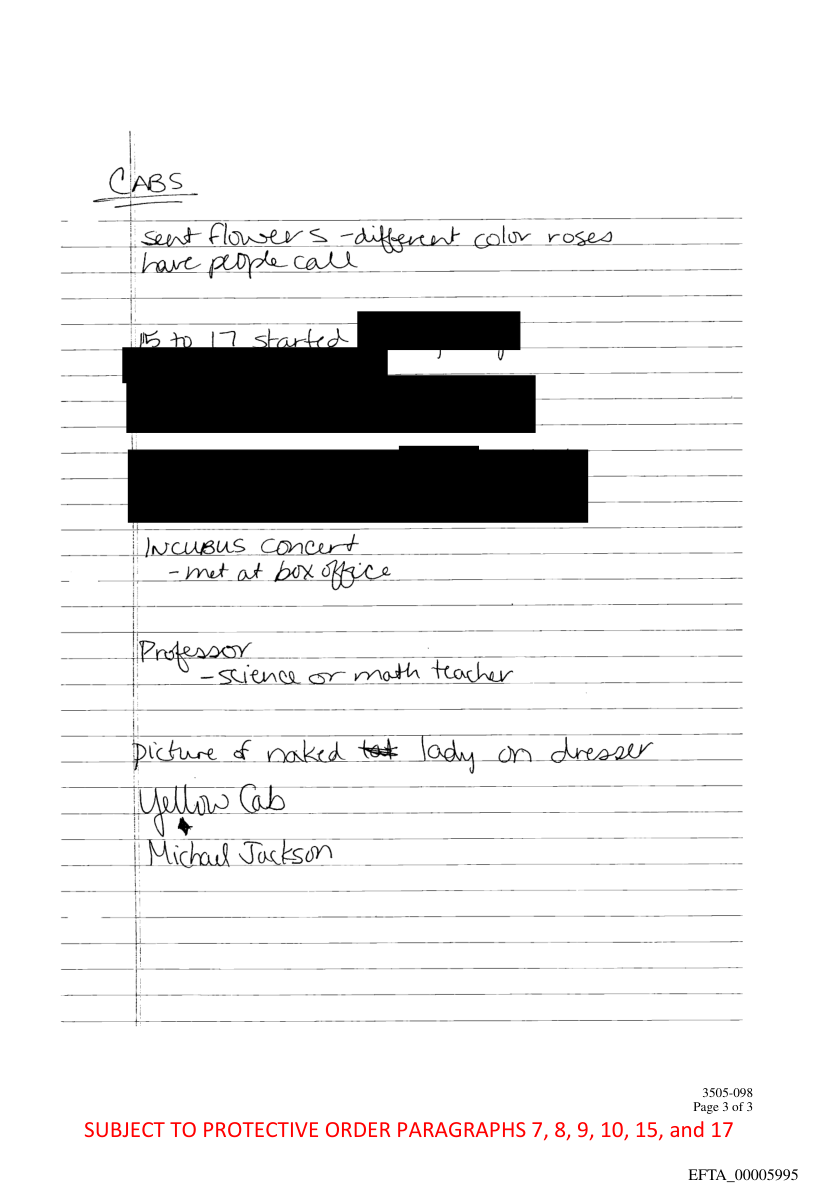 CABS
sent flowers - different color roses
have people call
15 to 17 started
INCUBUS concert
- met at box office
Professor
- science or math teacher
picture of naked lady on dresser
Yellow Cab
Michael Jackson
3505-098
Page 3 of 3
SUBJECT TO PROTECTIVE ORDER PARAGRAPHS 7, 8, 9, 10, 15, and 17
EFTA_00005995